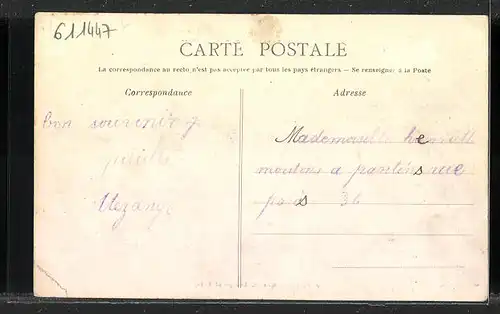 611447
CARTE POSTALE
La correspondance au recto n'est pas acceptée par tous les pays étrangers — Se renseigner à la Poste
Correspondance
Adresse
bon souvenir
Mademoiselle
a pantins rue
36